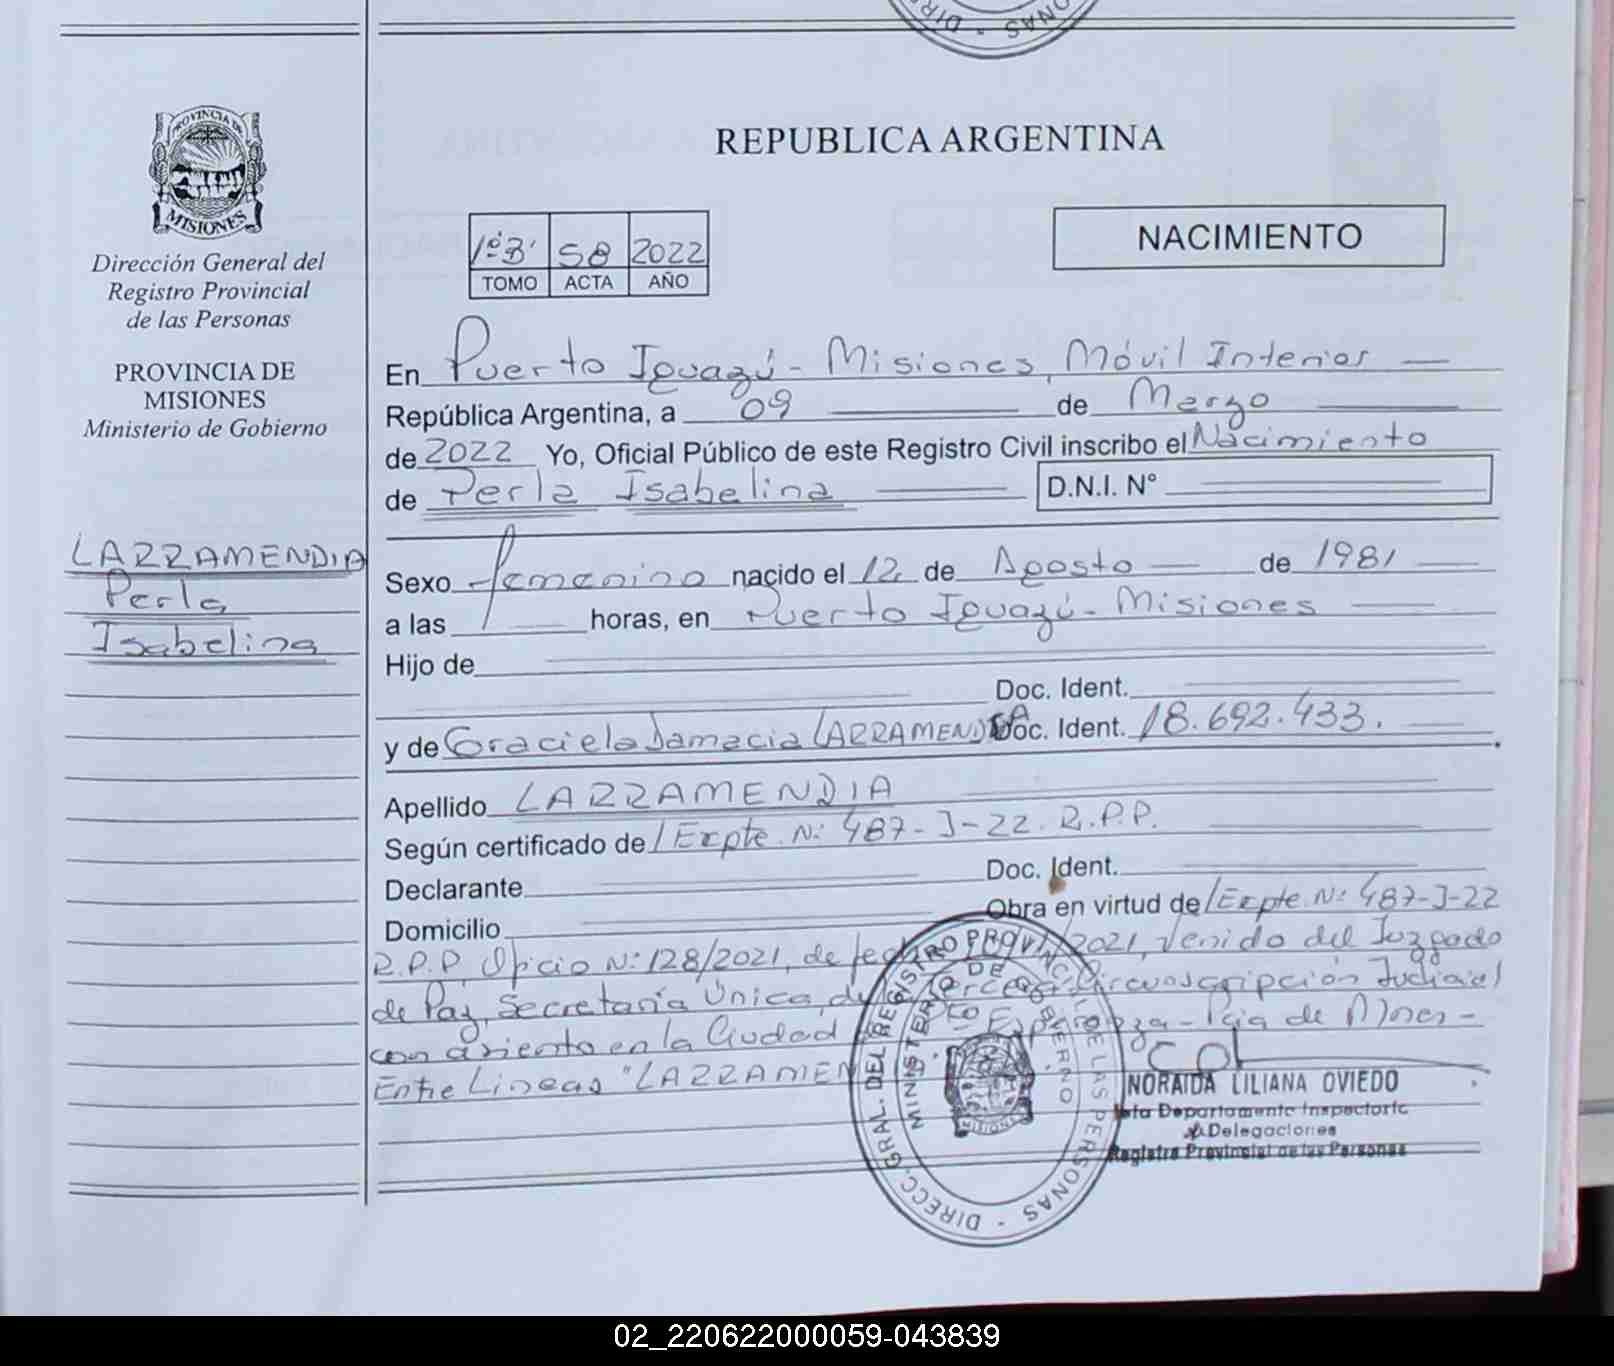 REPUBLICA ARGENTINA
PROVINCIA DE
MISIONES
Dirección General del
Registro Provincial
de las Personas
PROVINCIA DE
MISIONES
Ministerio de Gobierno
LARRAMENDIA
Perla
Isabelina
1º"B" 58 2022
TOMO ACTA AÑO
NACIMIENTO
En Puerto Iguazú - Misiones, Móvil Interior
República Argentina, a 09 de Marzo
de 2022 Yo, Oficial Público de este Registro Civil inscribo el Nacimiento
de Perla Isabelina D.N.I. N°
Sexo femenino nacido el 12 de Agosto de 1981
a las horas, en Puerto Iguazú - Misiones
Hijo de
Doc. Ident.
y de Graciela Damacia LARRAMENDIA Doc. Ident. 18.692.433.
Apellido LARRAMENDIA
Según certificado de /Expte. Nº 487-J-22. R.P.P.
Declarante Doc. Ident.
Domicilio Obra en virtud de /Expte. Nº 487-J-22
R.P.P, Oficio Nº 128/2021, de /2021, venido del Juzgado
de Paz, Secretaría Única, de Tercera Circunscripción Judicial
con asiento en la Ciudad de Pto Esperanza - Pcia de Mnes -
Entre Lineas "LARRAMEN
DIRECC. GRAL. DEL REGISTRO PROVINCIAL DE LAS PERSONAS
MINISTERIO DE GOBIERNO
MISIONES
NORAIDA LILIANA OVIEDO
Departamento Inspectoría
Delegaciones
Registro Provincial de las Personas
DIRE - SONAS
02_220622000059-043839